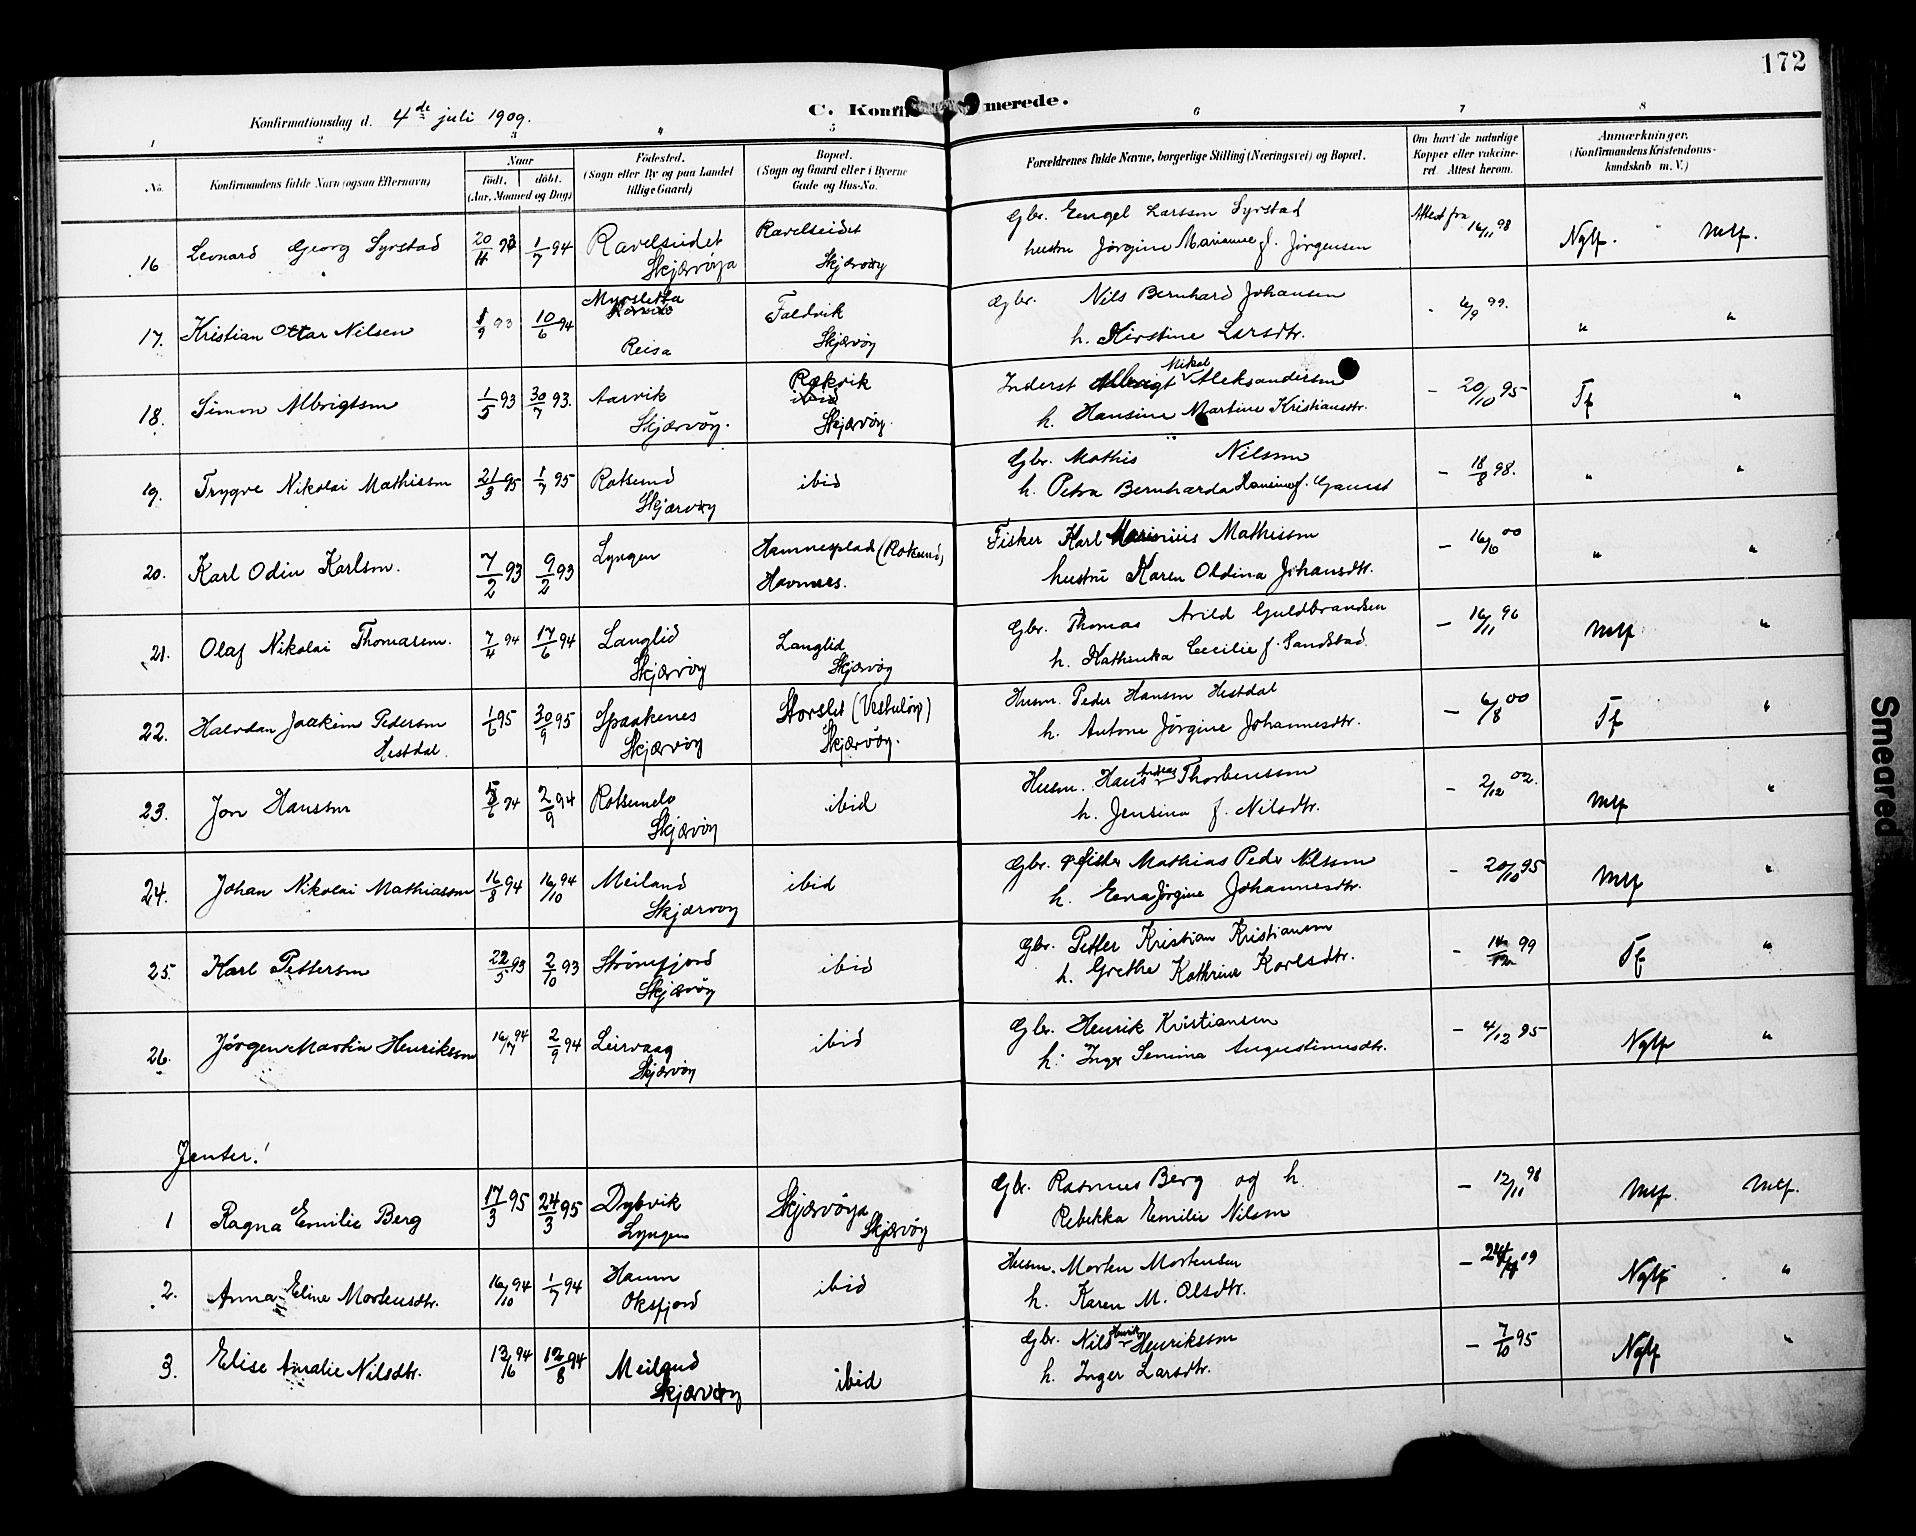 172
Konfirmationsdag d. 4de juli 1909.
C. Konfirmerede.
1 2 3 4 5 6 7 8
No. Konfirmandens fulde Navn (ogsaa Efternavn)
Naar
födt. döbt.
(Aar, Maaned og Dag)
Födested.
(Sogn eller By og paa Landet
tillige Gaard)
Bopæl.
(Sogn og Gaard eller i Byerne
Gade og Hus-No.
Forældrenes fulde Navne, borgerlige Stilling (Næringsvei) og Bopæl.
Om havt de naturlige
Kopper eller vakcine-
ret. Attest herom.
Anmærkninger.
(Konfirmandens Kristendoms-
kundskab m. V.)
16 Leonard Georg Syrstad 20/11 93 1/7 94 Ravelseidet Skjærvöya Ravelseidet Skjærvöy
Gbr. Engel Larssen Syrstad
hustru Jørgine Marianne f. Jørgensen
Attest fra 16/11 98 Nglf. Mtf.
17. Kristian Ottar Nilsen 1/9 93 10/6 94 Myrsletta Reisa Taldvik Skjærvöy
Gbr. Nils Bernhard Johansen
h. Kirstine Larsdtr.
- 6/9 99. " "
18. Simon Albrigtsen 1/5 93 30/7 93. Aarvik Skjærvöy. Rakvik Skjærvöy.
Inderst Albrigt Mikal Aleksandersen
h. Hansine Martine Kristiansdtr.
- 20/10 95 Tf "
19. Trygve Nikolai Mathissen 21/3 95 1/7 95 Rotsund Skjærvöy ibid
Gbr. Mathis Nilsen
h. Petra Bernharda Hansine f. Gamst
- 18/8 98. " "
20. Karl Odin Karlsen. 7/2 93 9/2 93 Lyngen Hamneplad (Rotsund) Havnnes.
Fisker Karl Marinius Mathissen
hustru Karen Oldina Johansdtr.
- 16/6 00 " "
21. Olaf Nikolai Thomassen. 7/4 94 17/6 94 Langlid Skjærvöy Langlid Skjærvöy
Gbr. Thomas Arild Guldbrandsen
h. Kathinka Cecilie f. Sandstad.
- 16/11 96 Mtf "
22. Halvdan Joakim Pedersen Hestdal. 1/6 95 30/9 95 Spaakenes Skjærvöy Storslet Skjærvöy.
Husm. Peder Hansen Hestdal
h. Antone Jørgine Johannesdtr.
- 6/8 00 Tf "
23. Jon Hanssen 5/6 94 2/9 94 Rotsund Skjærvöy ibid
Husm. Hans Andreas Thorbenssen
h. Jensina f. Nilsdtr.
- 2/12 02. Mtf "
24. Johan Nikolai Mathiassen 16/8 94 16/10 94 Meiland Skjærvöy ibid
Gbr. Mathias Peder Nilssen
h. Erna Jørgine Johannesdtr.
- 20/10 95 Mtf "
25. Karl Pettersen 22/5 93 2/10 93 Strömfjord Skjærvöy ibid
Gbr. Petter Kristian Kristiansen
h. Grethe Kathrine Karlsdtr.
- 99 Tf "
26. Jørgen Martin Henriksen 16/7 94 2/9 94 Leirvaag Skjærvöy ibid
Gbr. Henrik Kristiansen
h. Inger Senina Augustinusdtr.
- 4/12 95 Nglf "
Jenter!
1 Ragna Emilie Berg 17/3 95 24/3 95 Dybvik Lyngen Skjærvöya Skjærvöy
Gbr. Rasmus Berg og h.
Rebekka Emilie Nilsen
- 12/11 98 Mtf. Mtf.
2. Anna Eline Mortensdtr. 16/10 94 1/7 94 Hamn Oksfjord ibid
Husm. Morten Mortensen
h. Karen M. Olsdtr.
- 09 Nglf "
3. Elise Amalie Nilsdtr. 13/6 94 12/8 94 Meiland Skjærvöy ibid
Gbr. Nils Henrik Henriksen
h. Inger Larsdtr.
- 7/10 95 Nglf "
Smeared